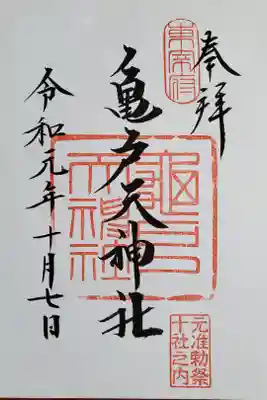 奉拝
東宰府
亀戸天神社
元准勅祭
十社之内
令和元年十月七日